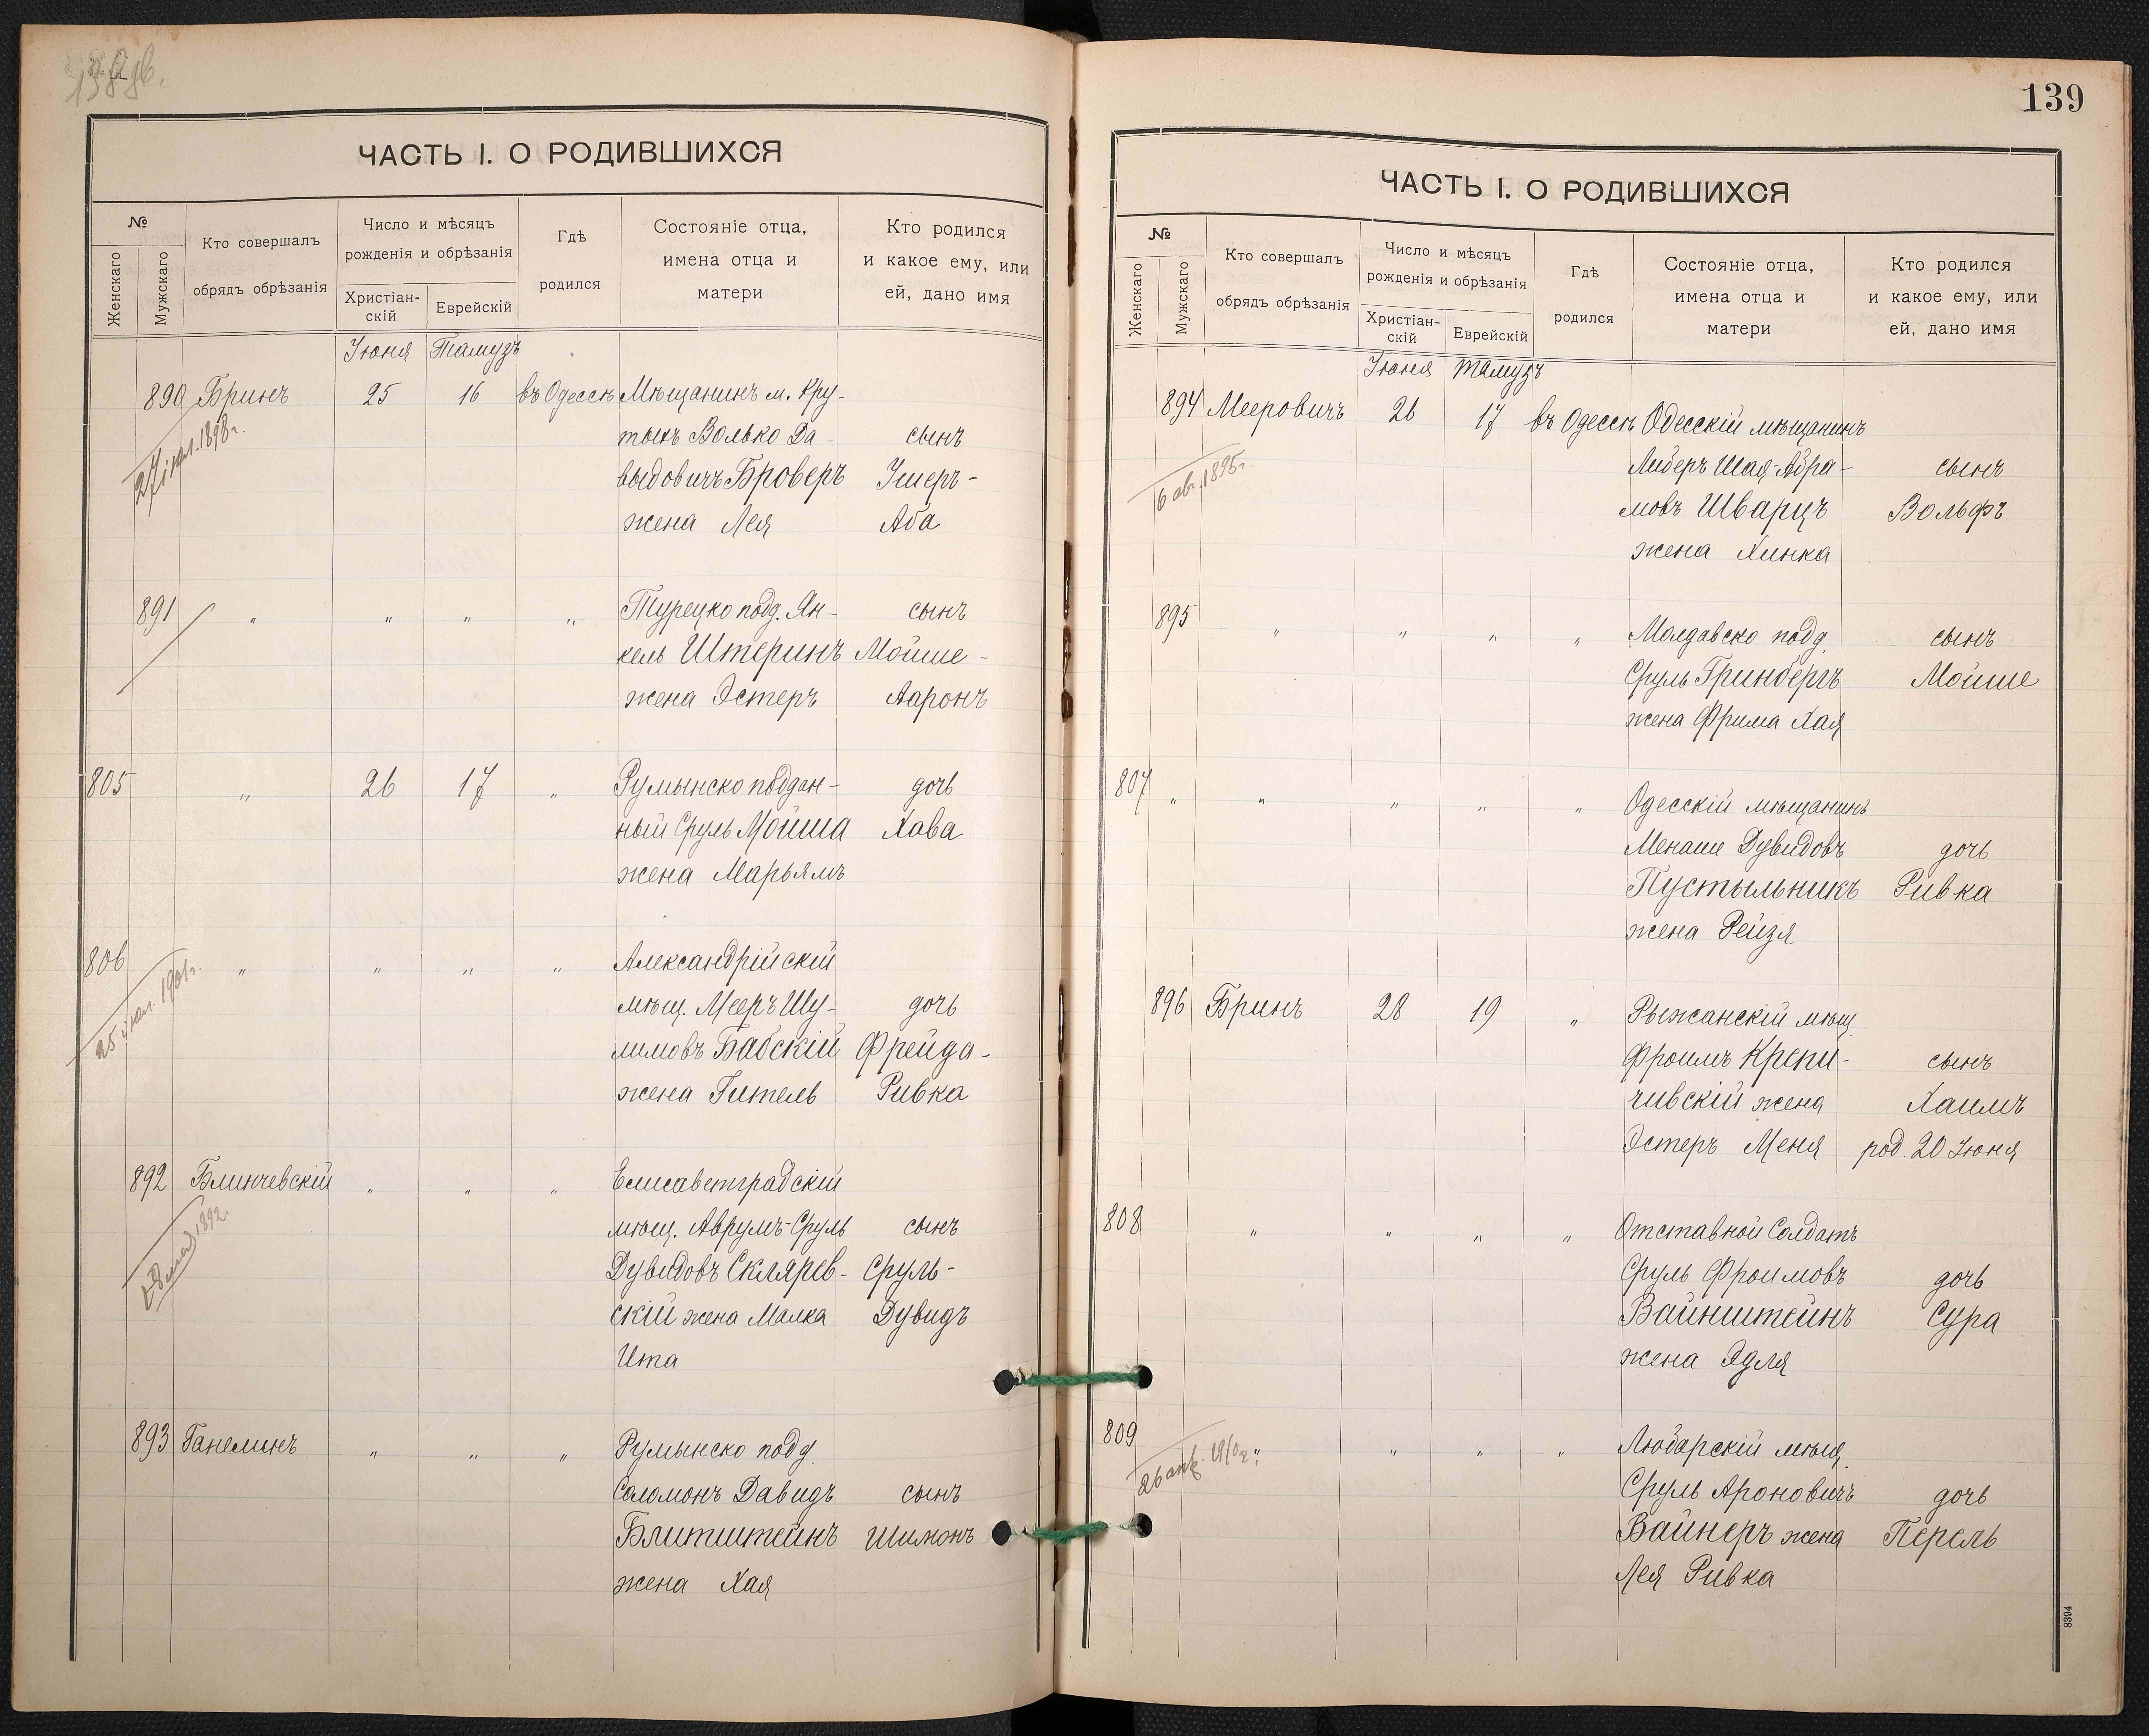 ЧАСТЬ I. О РОДИВШИХСЯ
№
Женскаго
Мужскаго
Кто совершалъ
обрядъ обрѣзанія
Число и мѣсяцъ
рожденія и обрѣзанія
Христіан-
скій
Еврейскій
Гдѣ
родился
Состояніе отца,
имена отца и
матери
Кто родился
и какое ему, или
ей, дано имя
Іюня Тамузъ
890 Бринъ 25 16 въ Одессѣ Мѣщанинъ м. Кру-
тыхъ Волько Да- сынъ
выдовичъ Броверъ Ушеръ-
жена Лея Аба
1898г.
891 " " " " Турецко подд. Ян- сынъ
кель Штеринъ Мойше-
жена Эстеръ Ааронъ
805 " 26 17 " Румынско поддан- дочь
ный Сруль Мойша Хава
жена Марьямъ
806 " " " " Александрійскій
мѣщ. Мееръ Шу- дочь
лимовъ Бабскій Фрейда-
жена Гитель Ривка
1901г.
892 Блинчевскій " " " Елисаветградскій
мѣщ. Аврумъ-Сруль сынъ
Дувидовъ Скляров- Сруль-
скій жена Малка Дувидъ
Ита
1892
893 Ганелинъ " " " Румынско подд.
Соломонъ Давидъ сынъ
Блитштейнъ Шимонъ
жена Хая
139
ЧАСТЬ I. О РОДИВШИХСЯ
№
Женскаго
Мужскаго
Кто совершалъ
обрядъ обрѣзанія
Число и мѣсяцъ
рожденія и обрѣзанія
Христіан-
скій
Еврейскій
Гдѣ
родился
Состояніе отца,
имена отца и
матери
Кто родился
и какое ему, или
ей, дано имя
Іюня Тамузъ
894 Мееровичъ 26 17 въ Одессѣ Одесскій мѣщанинъ
Либеръ Шая-Абра- сынъ
мовъ Шварцъ Вольфъ
жена Хинка
6 авг. 1895г.
895 " " " " Молдавско подд. сынъ
Сруль Гринбергъ Мойше
жена Фрима Хая
807 " " " " " Одесскій мѣщанинъ
Менаше Дувидовъ дочь
Пустыльникъ Ривка
жена Рейзя
896 Бринъ 28 19 " Рыжанскій мѣщ.
Фроимъ Крепи- сынъ
чивскій жена Хаимъ
Эстеръ Меня род. 20 Іюня
808 " " " " Отставной Солдатъ
Сруль Фроимовъ дочь
Вайнштейнъ Сура
жена Эдля
809 " " " " Любарскій мѣщ.
Сруль Ароновичъ дочь
Вайнеръ жена Перель
Лея Ривка
8394